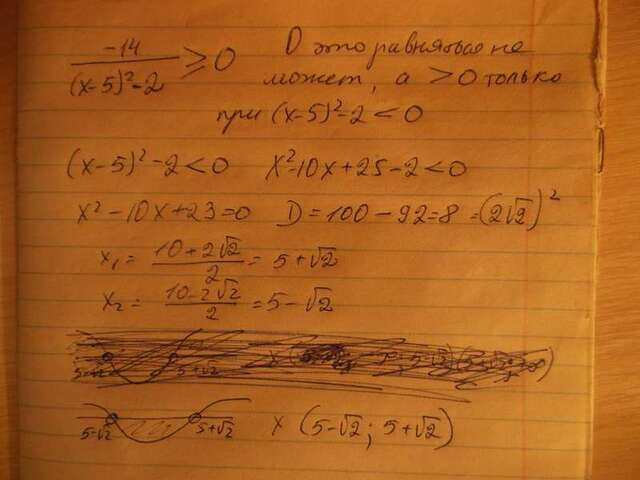 -14/((x-5)²-2) ≥ 0 0 это равняться не
может, а >0 только
при (x-5)²-2<0
(x-5)²-2<0 x²-10x+25-2<0
x²-10x+23=0 D=100-92=8=(2√2)²
x₁=(10+2√2)/2=5+√2
x₂=(10-2√2)/2=5-√2
5-√2 5+√2
5-√2 5+√2 x (5-√2; 5+√2)